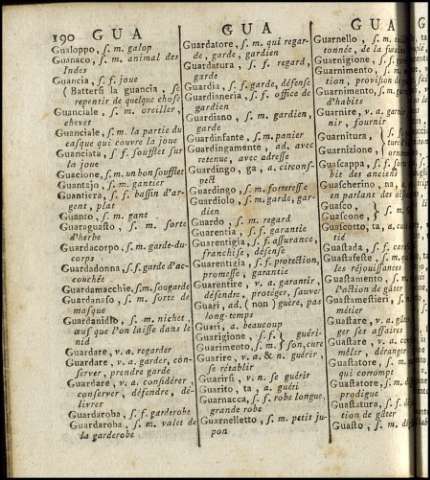 190 GUA
Gualoppo, ſ. m. galop
Guanaco, m. animal des
Indes
Guancia, ſ. f. joue
(Batterſi la guancia, ſe
repentir de quelque choſe
Guanciale, ſ. m. oreiller,
chevet
Guanciale, ſ. m. la partie du
caſque qui couvre la joue
Guanciata, ſ. f. ſoufflet ſur
la joue
Guacione, ſ. m. un bon ſoufflet
Guantajo, ſ. m. gantier
Guantiera, ſ. f. baſſin d'ar-
gent, plat
Guanto, ſ. m. gant
Guaraguaſto, ſ. m. ſorte
d'herbe
Guardacorpo, ſ. m. garde-du-
corps
Guardadonna, ſ. f. garde d'ac-
couchée
Guardamacchie, ſ. m. ſougarde
Guardanaſo, ſ. m. ſorte de
maſque
Guardanidio, ſ. m. nichet,
œuf que l'on laiſſe dans le
nid
Guardare, v. a. regarder
Guardare, v. a. garder, con-
ſerver, prendre garde
Guardare, v. a. conſidérer,
conſerver, défendre, dé-
livrer
Guardaroba, ſ. f. garderobe
Guardaroba, ſ. m. valet de
la garderobe
GUA
Guardatore, ſ. m. qui regar-
de, garde, gardien
Guardatura, ſ. f. regard,
garde
Guardia, ſ. f. garde, défenſe
Guardianeria, ſ. f. office de
gardien
Guardiano, ſ. m. gardien,
garde
Guardinfante, ſ. m. panier
Guardingamente, ad. avec
retenue, avec adreſſe
Guardingo, ga, a. circonſ-
pect
Guardingo, ſ. m. fortereſſe
Guardiolo, ſ. m. garde, gar-
dien
Guardo, ſ. m. regard
Guarentia, ſ. f. garantie
Guarentigia, ſ. f. aſſurance,
franchiſe, défenſe
Guarentizia, ſ. f. protection,
promeſſe, garantie
Guarentire, v. a. garantir,
défendre, protéger, ſauver
Guari, ad. (non) guère, pas
long-temps
Guari, a. beaucoup
Guarigione, ſ. f. } guéri-
Guarimento, ſ. m. } ſon, cure
Guarire, v. a. & n. guérir,
ſe rétablir
Guarirſi, v. n. ſe guérir
Guarito, ta, a. guéri
Guarnacca, ſ. f. robe longue,
grande robe
Guarnelletto, ſ. m. petit ju-
pon
GUA
Guarnello, ſ. m.
tonnée, de la
Guarnigione, ſ. f.
Guarnimento, ſ. m.
tion, proviſion de
Guarnimento, ſ. m.
d'habits
Guarnire, v. a. garnir
, fournir
Guarnitura,
Guarnizione,
Guaſcappa, ſ. f.
bit des anciens
Guaſcherino, na, a.
en parlant des
Guaſco, }
Guaſcone, } ſ. m.
Guaſcotto, ta, a.
tié
Guaſtada, ſ. f.
Guaſtafeſte, ſ. m.
les réjouiſſances
Guaſtamento, ſ. m.
l'action de gâter
Guaſtameſtieri, ſ. m.
métier
Guaſtare, v. a. gâter
ger ſes affaires
Guaſtare, v. a.
mêler, déranger
Guaſtatore, ſ. m.
qui corrompt
Guaſtatore, ſ. m. d
prodigue
Guaſtatura, ſ. f.
tion de gâter
Guaſto, ſ. m.